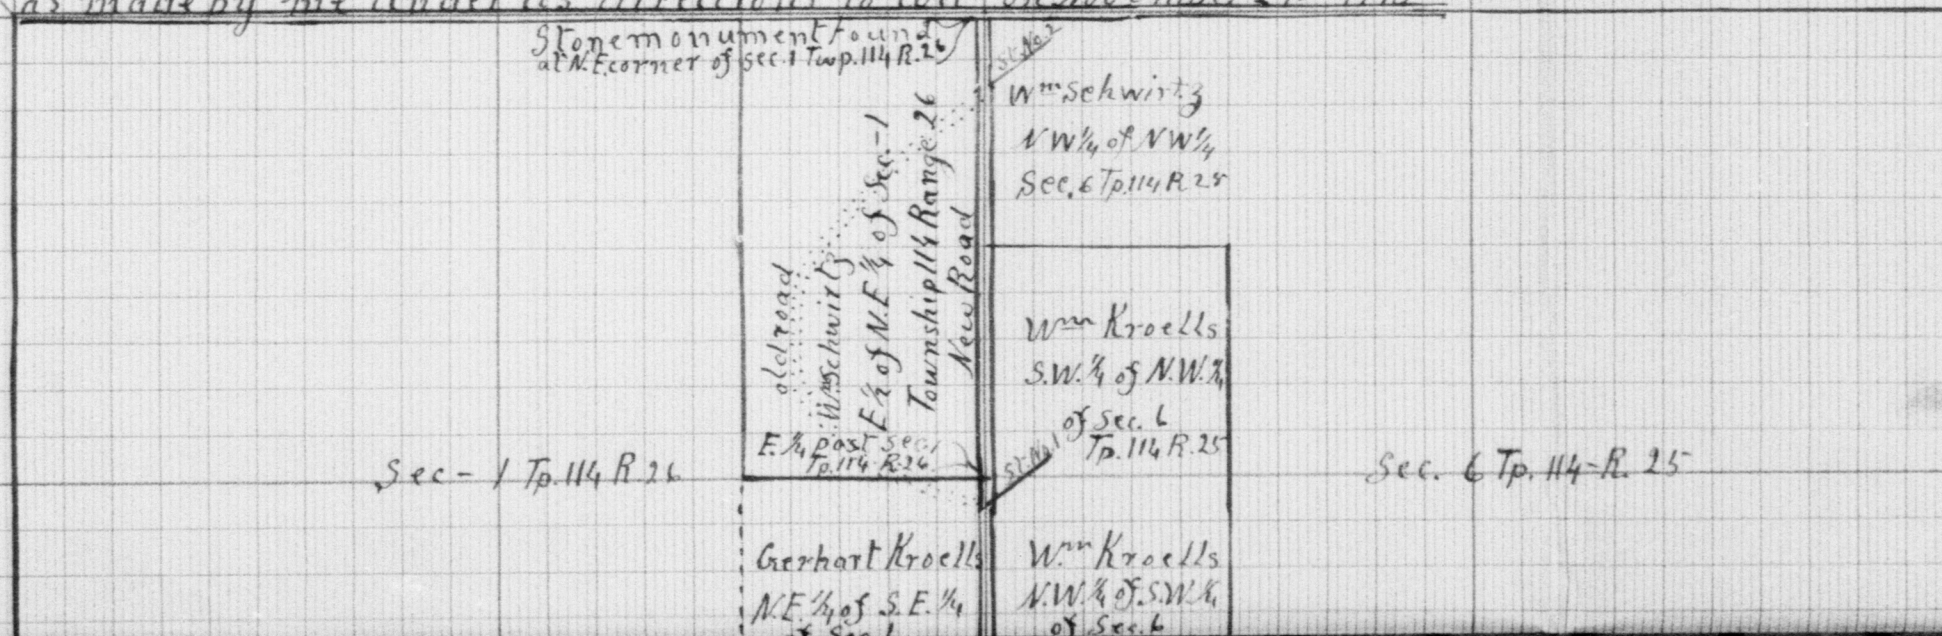 as made by me under its directions to wit on
Stone monument found
at N.E. corner of sec. 1 Twp. 114 R. 26
St. No. 2
Wm Schwirtz
NW 1/4 of NW 1/4
Sec. 6 Tp. 114 R 25
old road
Wm Schwirtz
E 1/2 of N.E 1/4 of Sec. - 1
Township 114 Range 26
New Road
Wm Kroells
S.W. 1/4 of N.W. 1/4
of Sec. 6
Tp. 114 R. 25
E. 1/4 post sec. 1
Tp. 114 R. 26
St. No. 1
Sec - 1 Tp. 114 R. 26
Sec. 6 Tp. 114 - R. 25
Gerhart Kroells
N.E. 1/4 of S.E. 1/4
of Sec. 1
Wm Kroells
N.W. 1/4 of S.W. 1/4
of Sec. 6